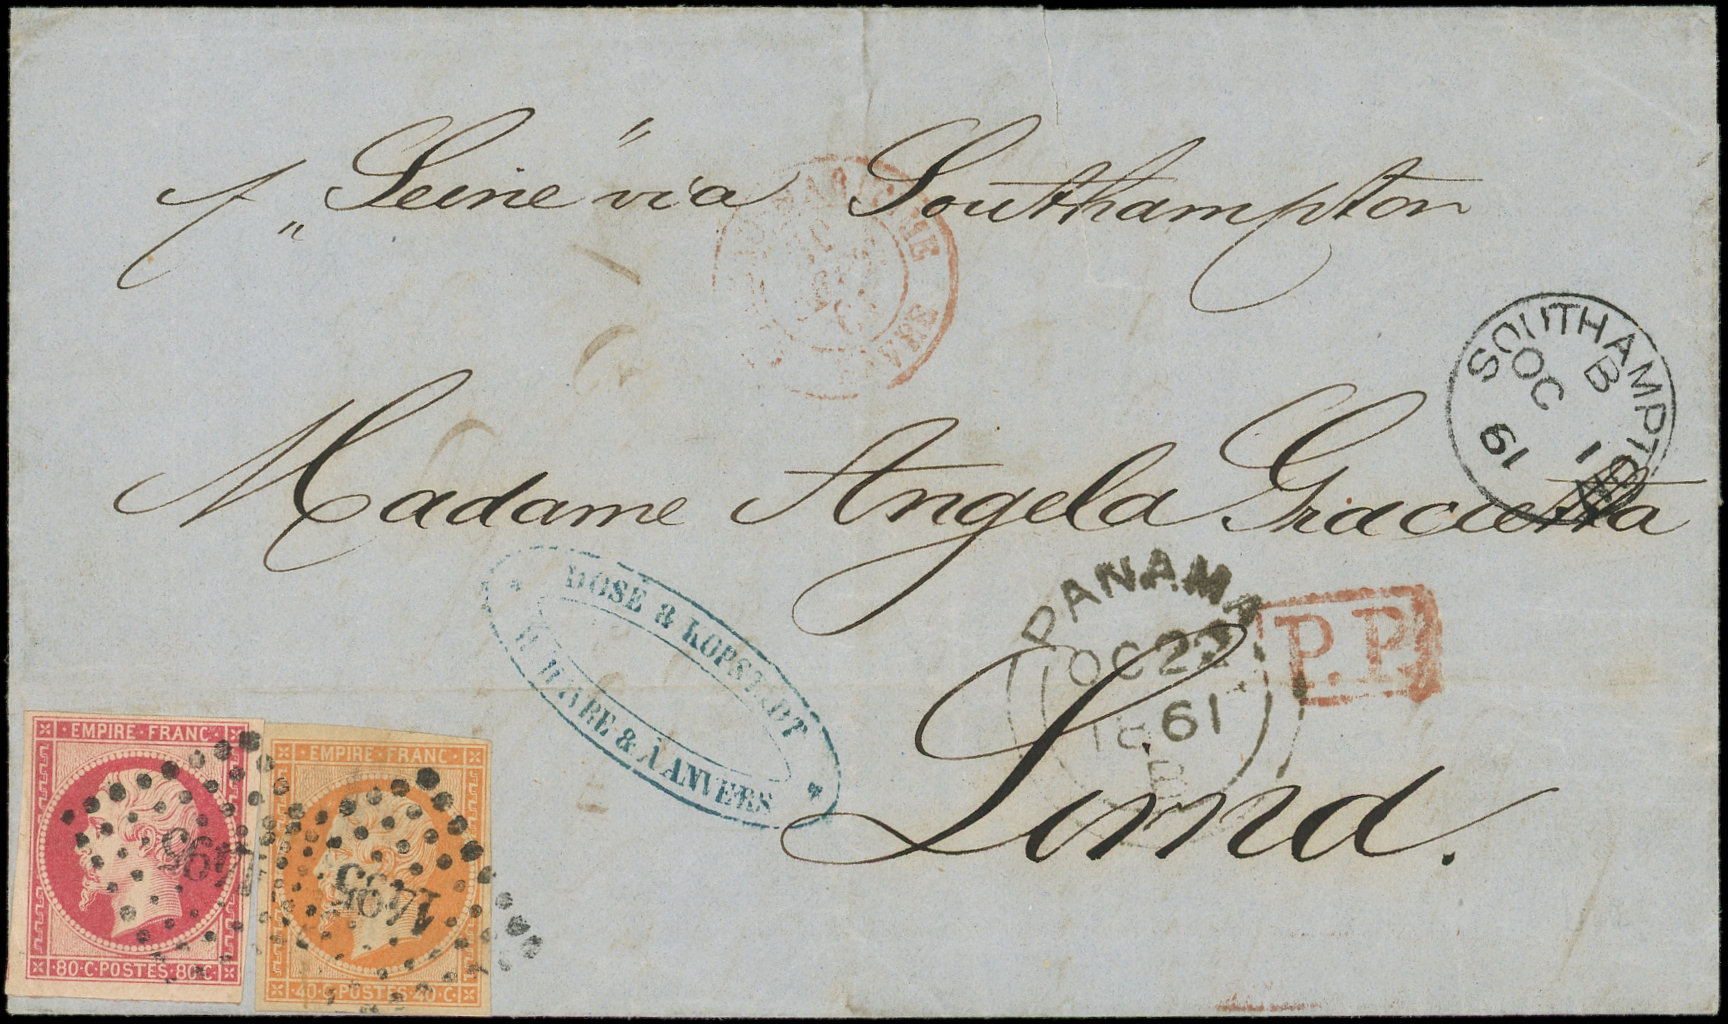 p. „Seine“ via Southampton
Madame Angela Gracietta
Lima.
SOUTHAMPTON
B
OC 1
61
PANAMA
OC 22
1861
P.P.
DOSE & KOPSTADT
HAVRE & À ANVERS
EMPIRE FRANC
80 · C · POSTES · 80 · C
EMPIRE · FRANC
40 · C · POSTES · 40 · C
1495
1495